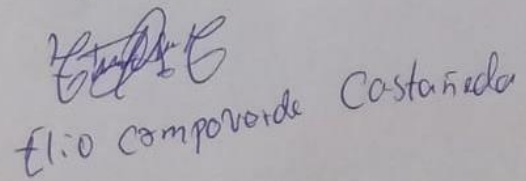 Elio Campoverde Castañeda